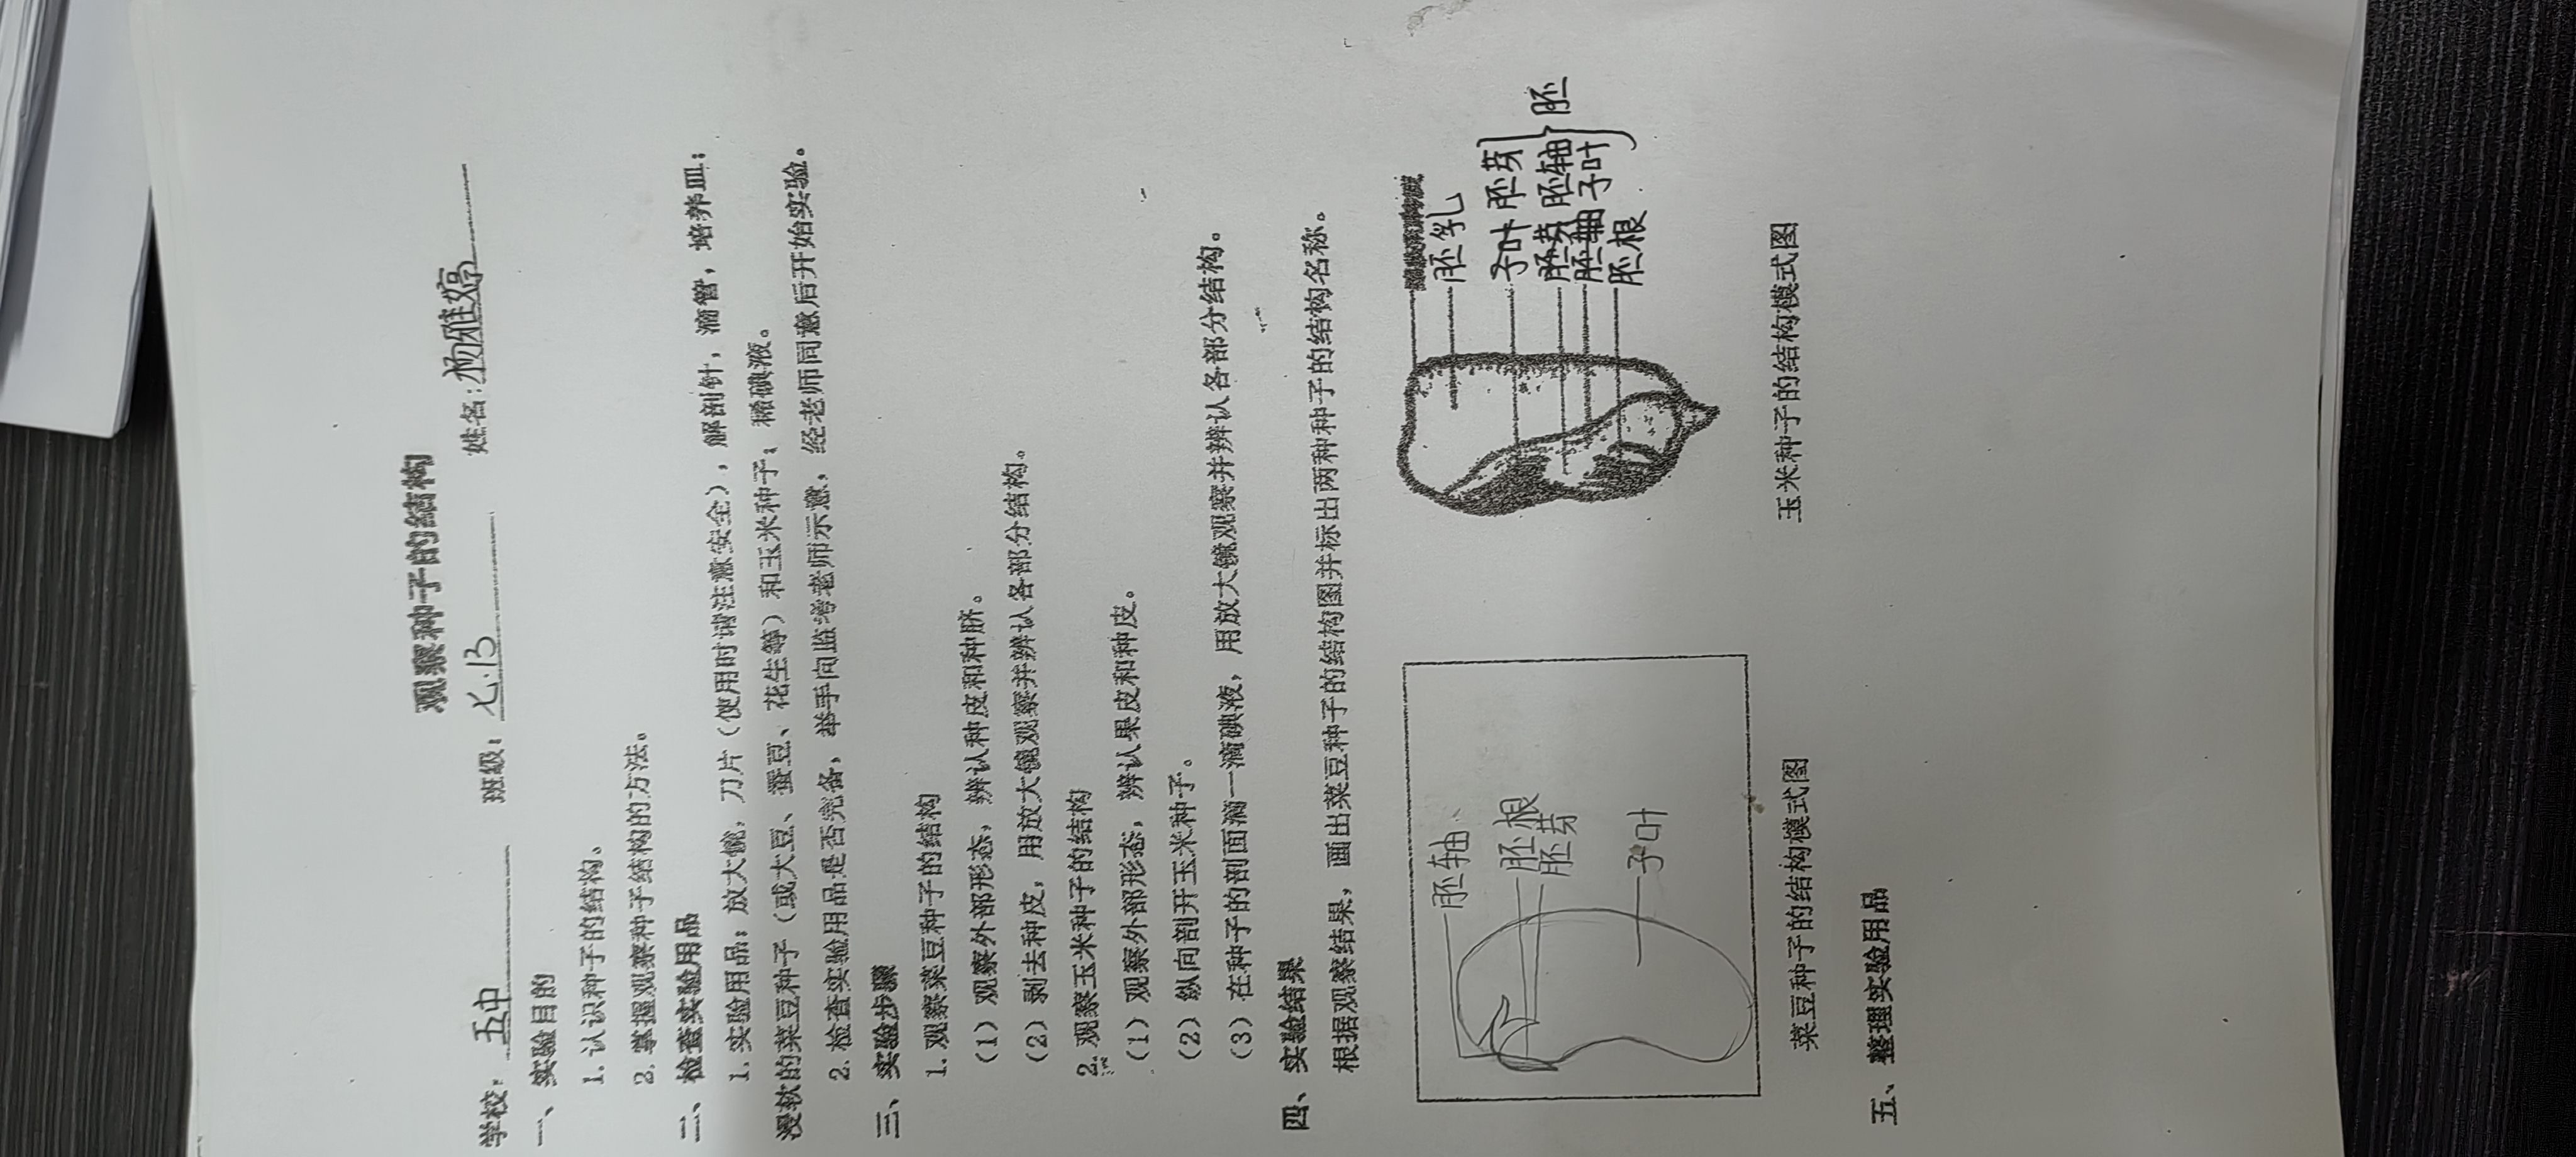 观察种子的结构
学校：五中 班级：七.13 姓名：杨雅婷
一、实验目的
1. 认识种子的结构。
2. 掌握观察种子结构的方法。
二、检查实验用品
1. 实验用品：放大镜，刀片（使用时请注意安全），解剖针，滴管，培养皿；
浸软的菜豆种子（或大豆、蚕豆、花生等）和玉米种子；稀碘液。
2. 检查实验用品是否完备，举手向监考老师示意，经老师同意后开始实验。
三、实验步骤
1. 观察菜豆种子的结构
（1）观察外部形态，辨认种皮和种脐。
（2）剥去种皮，用放大镜观察并辨认各部分结构。
2. 观察玉米种子的结构
（1）观察外部形态，辨认果皮和种皮。
（2）纵向剖开玉米种子。
（3）在种子的剖面滴一滴碘液，用放大镜观察并辨认各部分结构。
四、实验结果
根据观察结果，画出菜豆种子的结构图并标出两种种子的结构名称。
胚轴
胚根
胚芽
子叶
胚乳
子叶 胚芽
胚芽 胚轴 胚
胚轴 子叶
胚根
菜豆种子的结构模式图 玉米种子的结构模式图
五、整理实验用品